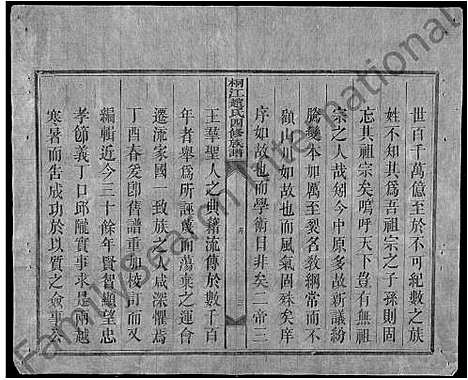 世百千萬億至於不可紀數之族
姓不知其爲吾祖宗之子孫則固
忘其祖宗矣嗚呼天下豈有無祖
宗之人哉矧今中原多故新議紛
騰變本加厲至裂名教綱常而不
顧山川如故也而風氣固殊矣庠
序如故也而學術日非矣二帝三
桐江趙氏四修族譜
序
三
王羣聖人之典籍流傳於數千百
年者舉爲所誣衊而蕩棄之運會
遷流家國一致族之人咸深懼焉
丁酉春爰卽舊譜重加校訂而及
編輯近今三十餘年賢智顯望忠
孝節義丁口邱隴實事求是兩越
寒暑而吿成功於以質之僉事
FamilySearch International